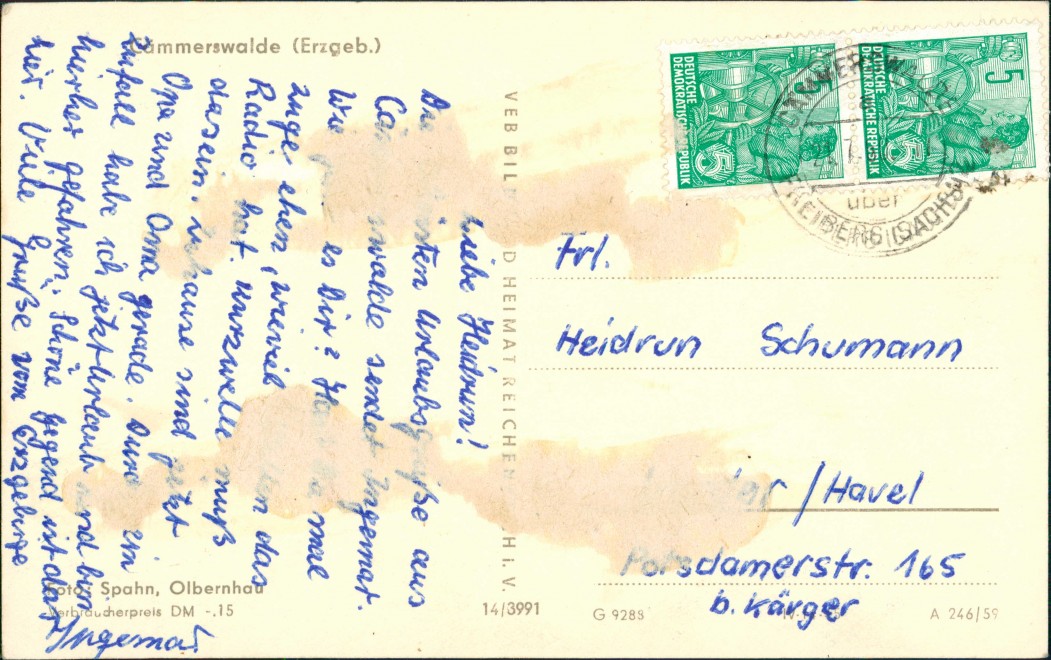 Cämmerswalde (Erzgeb.)
Liebe Heidrun!
Die Urlaubsgrüße aus
swalde sendet Ingemar.
Wie es Dir?
zugesehen, wieviel das
Radio hat. Kurzwelle muß
dasein. Zuhause sind jetzt
Opa und Oma gerade. Durch
Zufall habe ich jetzt Urlaub und bin
hierher gefahren. Schöne Gegend ist das
hier. Viele Grüße vom Erzgebirge
Ingemar
Foto: Spahn, Olbernhau
Verbraucherpreis DM -.15
VEB BILD HEIMAT REICHEN HI. V.
14/3991
DEUTSCHE
DEMOKRATISCHE REPUBLIK
5
5
DEUTSCHE
DEMOKRATISCHE REPUBLIK
5
5
über
FREIBERG (SACHS)
Frl.
Heidrun Schumann
/Havel
Potsdamerstr. 165
b. Kärger
G 9288
A 246/59